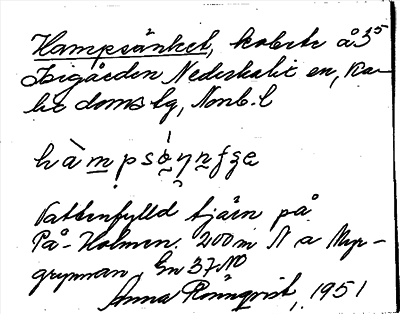 Hampsänket, kobete å 35
Isigården Nederkalix en, Ka-
lix domslg, Norrb. l
hàmpsǝŋnfge
Vattenfylld tjärn på
På-Holmen. 200 m N a Myr-
grynnan En 37 NO
Anna Rönnqvist, 1951